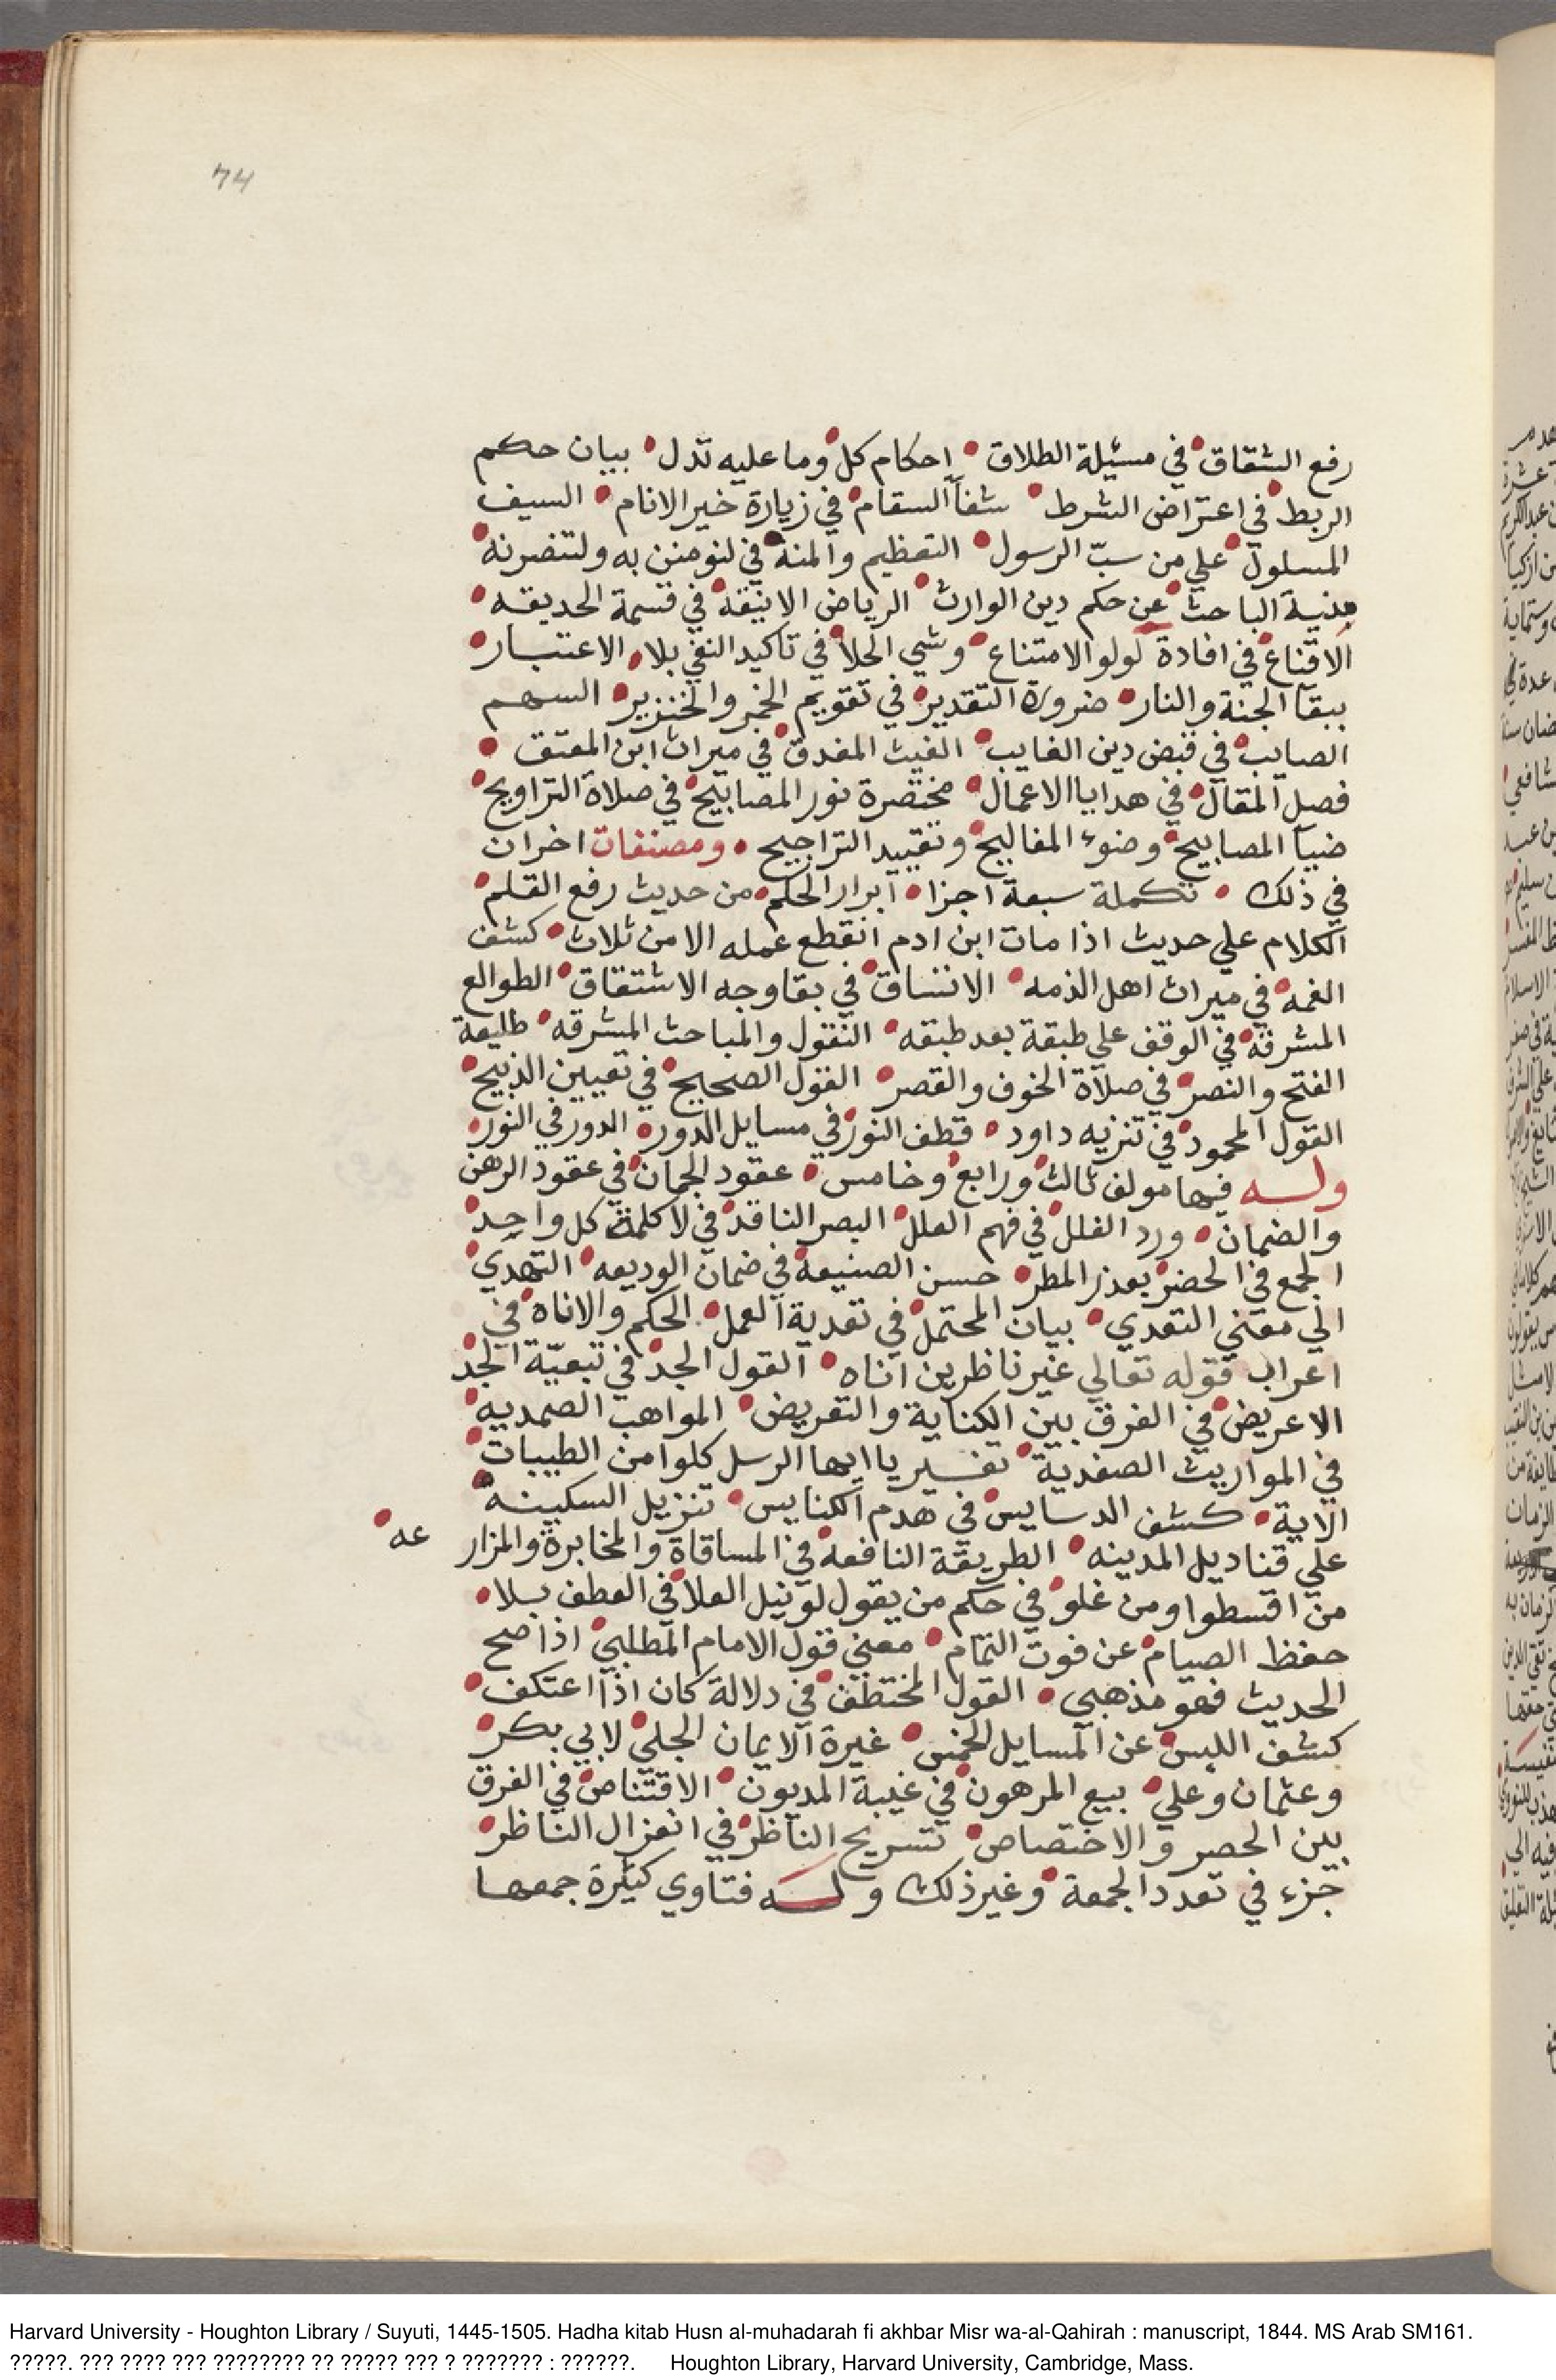 74
رفع الشقاق في مسئيلة الطلاق احكام كل وما عليه تدل بيان حكم
الربط في اعتراض الشرط شفآ السقام في زيارة خير الانام السيف
المسلول علي من سبّ الرسول التعظيم والمنة في لنومنن به ولتنصرنه
منية الباحث عن حكم دين الوارث الرياض الانيقة في قسمة الحديقه
الاقناع في افادة لولو الامتناع وشي الحلا في تاكيد النفي بلا الاعتبار
ببقآ الجنة والنار ضرورة التقدير في تقويم الخمر والخنزير السهم
الصايب في قبض دين الغايب الغيث المغدق في ميراث ابن المعتق
فصل المقال في هدايا الاعمال مختصرة نور المصابيح في صلاة التراويح
ضيآ المصابيح وضوء المفاليح وتقييد التراجيح ومصنفات اخران
في ذلك تكملة سبعة اجزا ابرار الحكم من حديث رفع القلم
الكلام علي حديث اذا مات ابن ادم انقطع عمله الا من ثلاث كشف
الغمه في ميراث اهل الذمه الاتساق في بقا وجه الاشتقاق الطوالع
المشرقة في الوقف علي طبقة بعد طبقه النقول والمباحث المشرقه طليعة
الفتح والنصر في صلاة الخوف والقصر القول الصحيح في تعيين الذبيح
القول المحمود في تنزيه داود قطف النور في مسايل الدور الدور في النور
وله فيها مولف ثالث ورابع وخامس عقود الجمان في عقود الرهن
والضمان ورد الغلل في فهم العلل البصر الناقد في لا كلمت كل واحد
الجمع في الحضر بعذر المطر حسن الصنيعة في ضمان الوديعه التهدي
الي معني التعدي بيان المحتمل في تعدية العمل الحكم والاناه في
اعراب قوله تعالي غير ناظرين اناه القول الجد في تبعيّة الجد
الاعريض في الفرق بين الكناية والتعريض المواهب الصمديه
في المواريث الصفدية تفسير ياايها الرسل كلوا من الطيبات
الاية كشف الدسايس في هدم الكنايس تنزيل السكينة
علي قناديل المدينه الطريقة النافعة في المساقاة والمخابرة والمزارعه
من اقسطوا ومن غلو في حكم من يقول لو نيل العلا في العطف بلا
حفظ الصيام عن فوت التمام معني قول الامام المطلبي اذا صح
الحديث فهو مذهبي القول المختطف في دلالة كان اذا اعتكف
كشف اللبس عن المسايل الخمس غيرة الايمان الجلي لابي بكر
وعثمان وعلي بيع المرهون في غيبة المديون الاقتناص في الفرق
بين الحصر والاختصاص تسريح الناظر في انعزال الناظر
جزء في تعدد الجمعة وغير ذلك وله فتاوي كثيرة جمعها
Harvard University - Houghton Library / Suyuti, 1445-1505. Hadha kitab Husn al-muhadarah fi akhbar Misr wa-al-Qahirah : manuscript, 1844. MS Arab SM161.
?????. ??? ???? ??? ???????? ?? ????? ??? ? ??????? : ??????. Houghton Library, Harvard University, Cambridge, Mass.